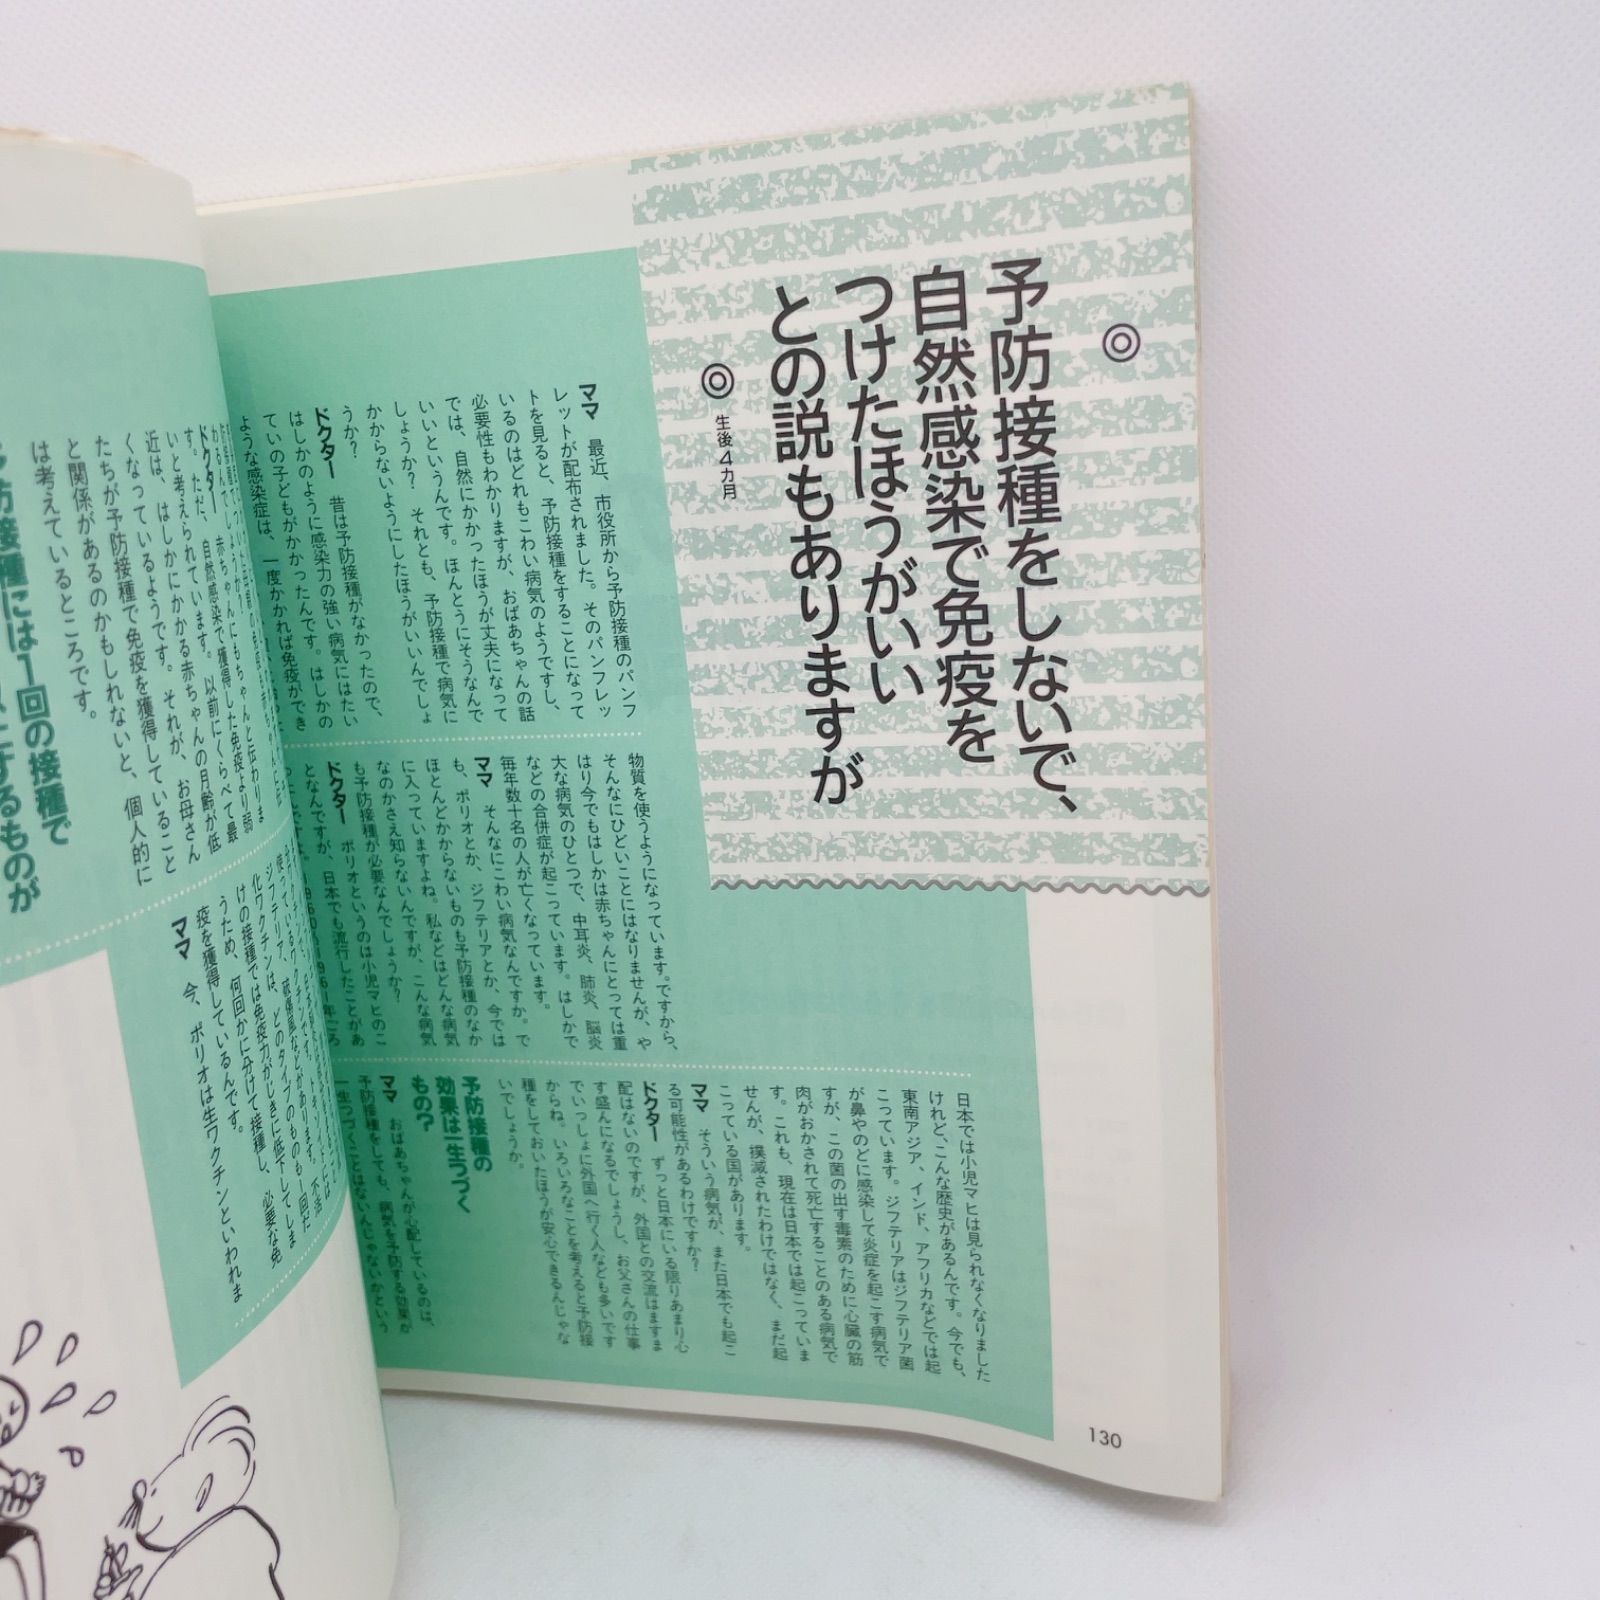 予防接種をしないで、
自然感染で免疫を
つけたほうがいい
との説もありますが
◎生後4カ月
ママ　最近、市役所から予防接種のパンフ
レットが配布されました。そのパンフレッ
トを見ると、予防接種をすることになって
いるのはどれもこわい病気のようですし、
必要性もわかりますが、おばあちゃんの話
では、自然にかかったほうが丈夫になって
いいというんです。ほんとうにそうなんで
しょうか？　それとも、予防接種で病気に
かからないようにしたほうがいいんでしょ
うか？
ドクター　昔は予防接種がなかったので、
はしかのように感染力の強い病気にはたい
ていの子どもがかかったんです。はしかの
ような感染症は、一度かかれば免疫ができ
物質を使うようになっています。ですから、
そんなにひどいことにはなりませんが、や
はり今でもはしかは赤ちゃんにとっては重
大な病気のひとつで、中耳炎、肺炎、脳炎
などの合併症が起こっています。はしかで
毎年数十名の人が亡くなっています。
ママ　そんなにこわい病気なんですか。で
も、ポリオとか、ジフテリアとか、今では
ほとんどかからないものも予防接種のなか
に入っていますよね。私などはどんな病気
なのかさえ知らないんですが、こんな病気
も予防接種が必要なんでしょうか？
ドクター　ポリオというのは小児マヒのこ
となんですが、日本でも流行したことがあ
1960〜1961年ころ
日本では小児マヒは見られなくなりました
けれど、こんな歴史があるんです。今でも、
東南アジア、インド、アフリカなどでは起
こっています。ジフテリアはジフテリア菌
が鼻やのどに感染して炎症を起こす病気で
すが、この菌の出す毒素のために心臓の筋
肉がおかされて死亡することのある病気で
す。これも、現在は日本では起こっていま
せんが、撲滅されたわけではなく、まだ起
こっている国があります。
ママ　そういう病気が、また日本でも起こ
る可能性があるわけですか？
ドクター　ずっと日本にいる限りあまり心
配はないのですが、外国との交流はますま
す盛んになるでしょうし、お父さんの仕事
でいっしょに外国へ行く人なども多いです
からね。いろいろなことを考えると予防接
種をしておいたほうが安心できるんじゃな
いでしょうか。
予防接種の
効果は一生つづく
もの？
ママ　おばあちゃんが心配しているのは、
予防接種をしても、病気を予防する効果が
一生つづくことはないんじゃないかという
130
わるんでしょうか？　赤ちゃんにもちゃんと伝わりま
ドクター
す。ただ、自然感染で獲得した免疫より弱
いと考えられています。以前にくらべて最
近は、はしかにかかる赤ちゃんの月齢が低
くなっているようです。それが、お母さん
たちが予防接種で免疫を獲得していること
と関係があるのかもしれないと、個人的に
は考えているところです。
予防接種には1回の接種で
するものが
ジフテリア、破傷風などがあります。不活
化ワクチンは、どのタイプのものも一回だ
けの接種では免疫力がじきに低下してしま
うため、何回かに分けて接種し、必要な免
疫を獲得しているんです。
ママ　今、ポリオは生ワクチンといわれま